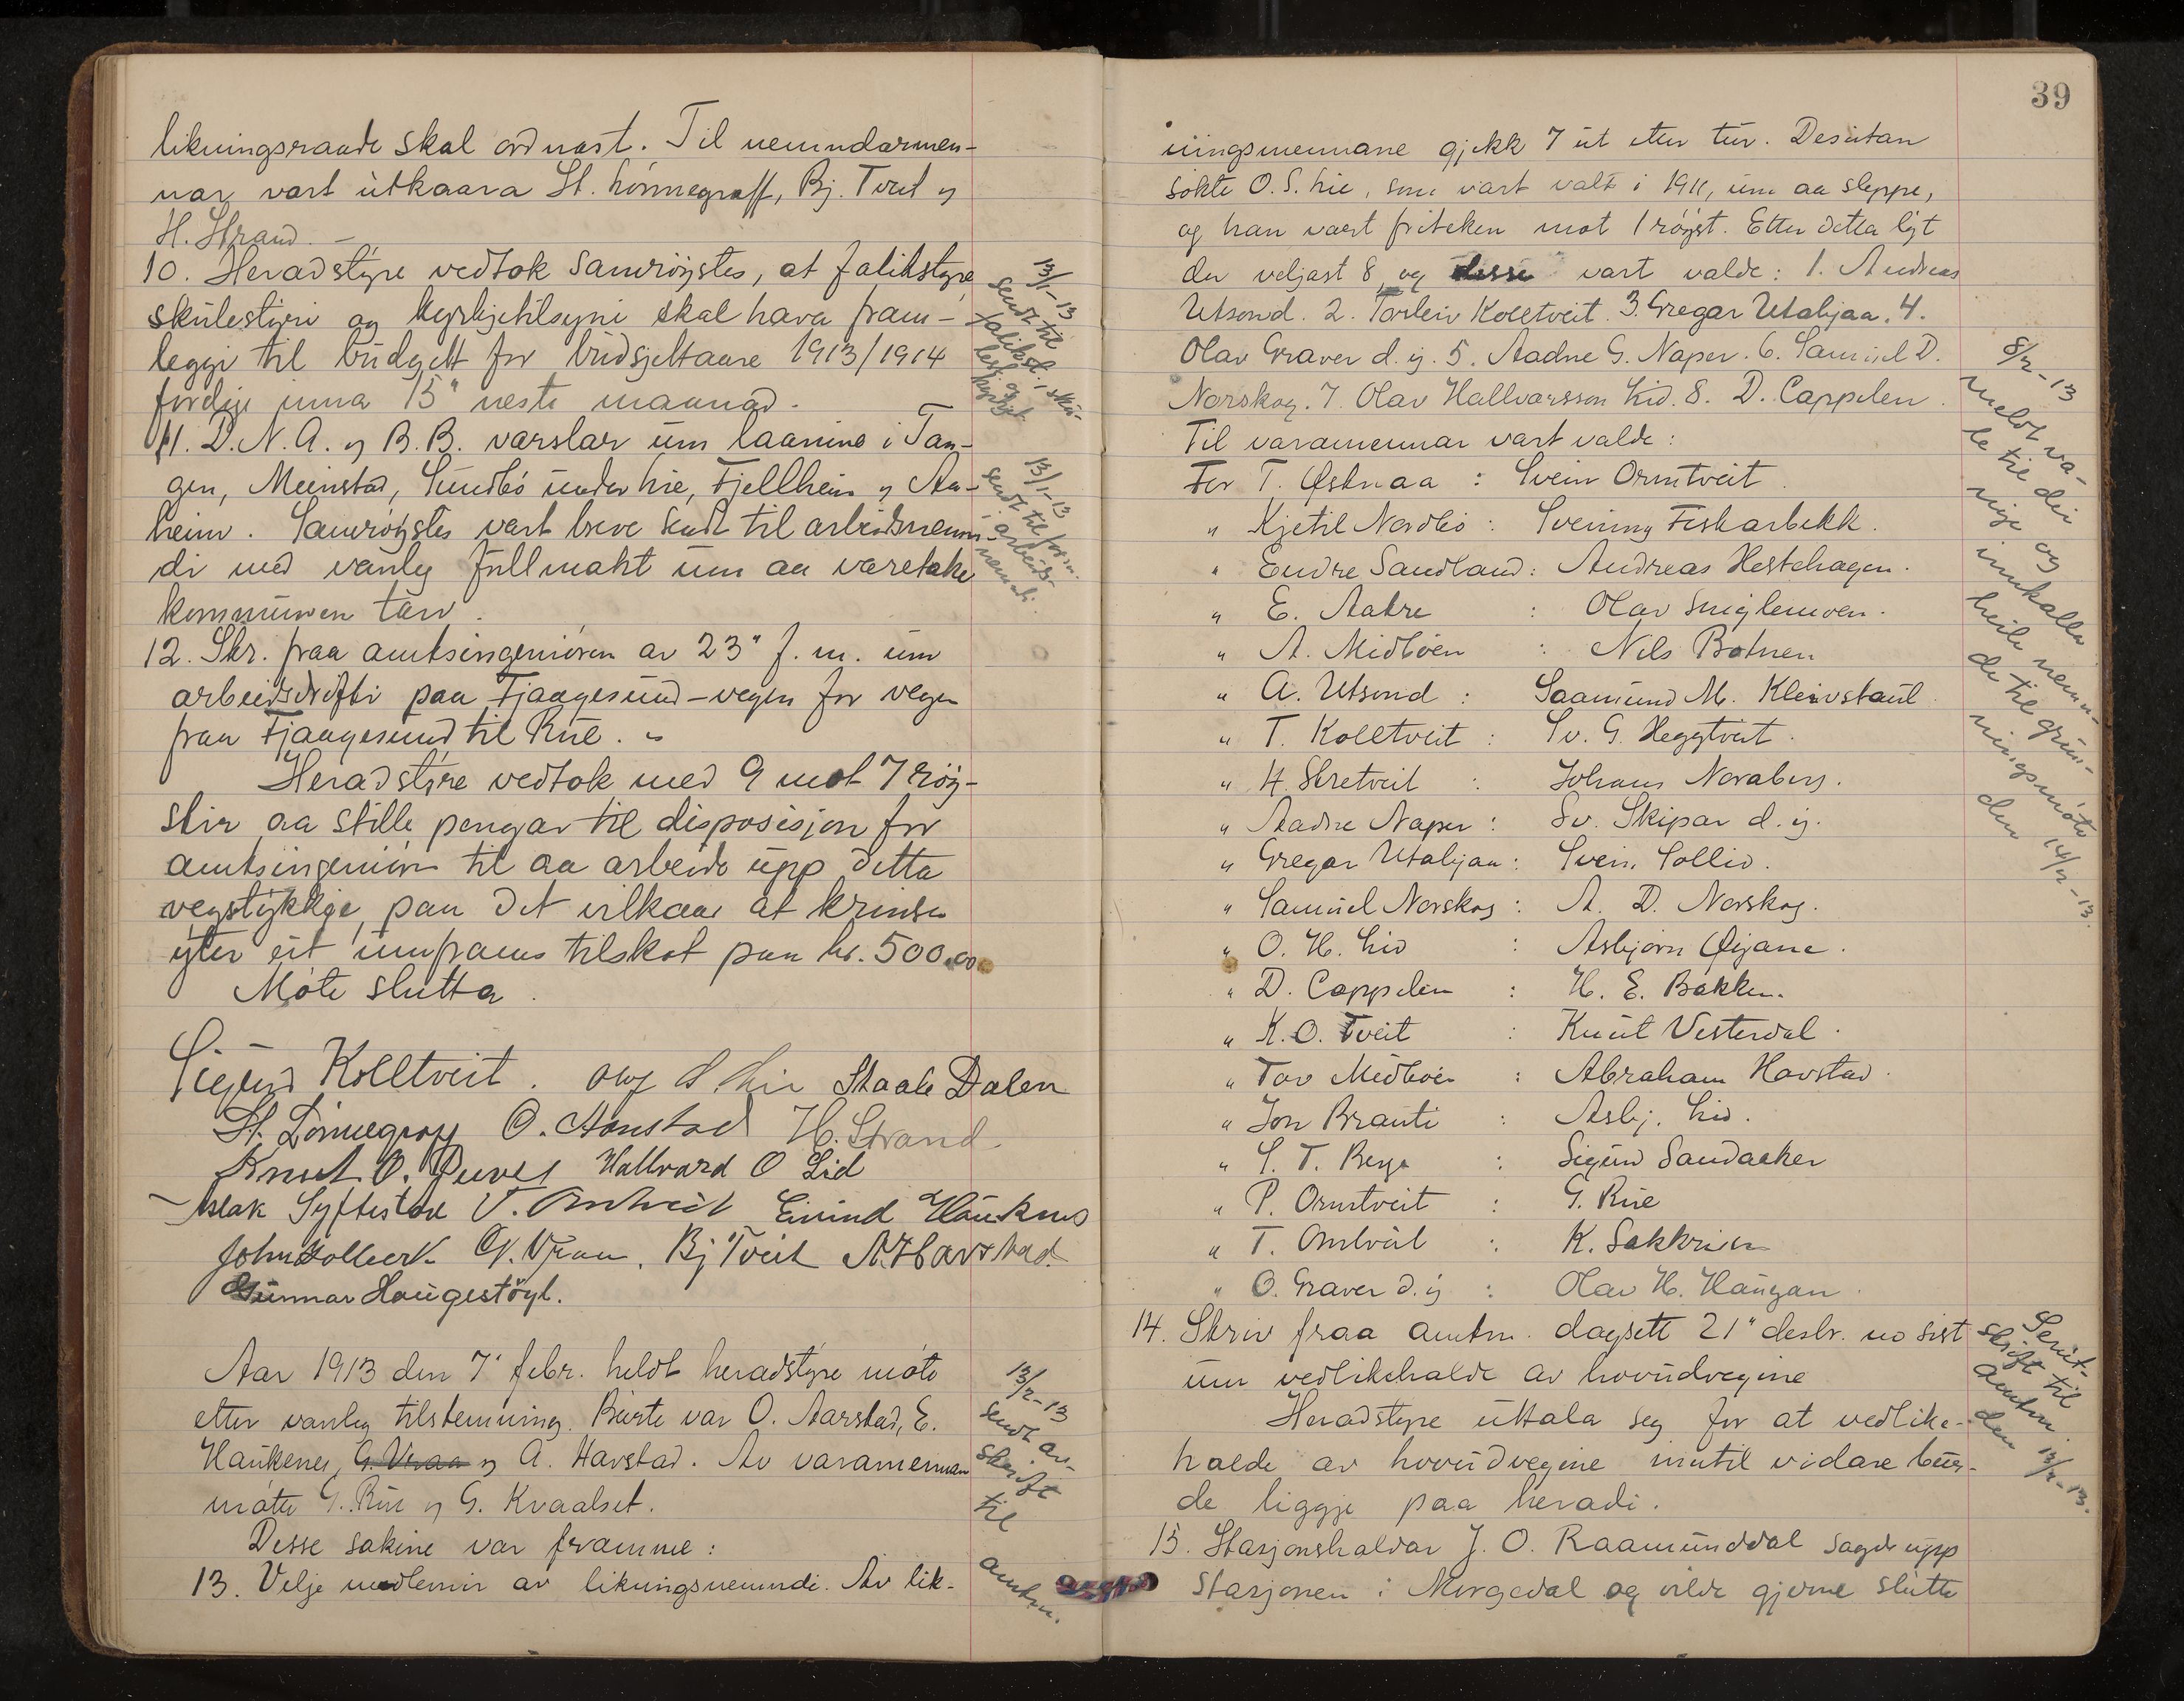 likningsraade skal ordnast. Til nemndarmen-
nar vart utkaara St. Lönnegraff, Bj. Tveit og
H. Strand. –
10. Heradstyre vedtok samröystes, at fatikstyre,
skulestyre og kyrkjetilsyni skal hava fram-
leggi til budgett for budsjettaare 1913/1914
ferdige inna 15" neste maanad.
13/1-13
sendt til
fatikst., sku-
lest. og
kyrkjet.
11. D.N.A. og B.B. varslar um laanine i Tan-
gen, Meinstad, Sundbö under Lie, Fjellheim og Aa-
heim. Samröystes vart breve sendt til arbeidsnemn-
di med vanleg fullmakt um aa varetaka
kommunen tarv.
13/1-13
sendt til form.
i arbeids-
nemndi.
12. Skr. fraa amtsingeniören av 23" f.m. um
arbeidsdrifti paa Fjaagesund-vegen for vegen
fraa Fjaagesund til Rue. "
Heradstyre vedtok med 9 mot 7 röy-
stir aa stille pengar til disposisjon for
amtsingeniören til aa arbeide upp detta
vegstykkje, paa det vilkaar at krinsen
yter eit umframs tilskot paa kr. 500,00.
Möte slutta.
Sigurd Kolltveit. Olaf S Lie Staale Dalen
St. Lönnegraff O. Aanstad H. Strand
Knut O. Hallvard O Lid
Aslak Syftestad T. Omtveit Eivind Haukenes
John Holbæk G. Vraa. Bj Tveit A. Havstad.
Gunnar Haugestöyl.
Aar 1913 den 7' febr. heldt heradstyre möte
etter vanleg tilstemning. Burte var O. Aarstad, E.
Haukenes, G. Vraa og A. Havstad. Av varamennan
mötte G. Rue og G. Kvaalset.
Desse sakine var framme:
13. Velje medlemir av likningsnemndi. Av lik-
13/2-13
sendt av-
skrift
til
amtm.
39
ningsmennane gjekk 7 ut etter tur. Desutan
sökte O.S. Lie, som vart vald i 1911, um aa sleppe,
og han vart friteken mot 1 röyst. Etter detta lyt
der veljast 8, og desse vart valde: 1. Andreas
Utsond. 2. Torleiv Kolltveit. 3. Gregar Utabjaa. 4.
Olav Graver d.y. 5. Aadne G. Naper. 6. Samuel D.
Norskog. 7. Olav Hallvarsson Lid. 8. D. Cappelen.
Til varamennar vart valde:
For T. Østnaa : Svein Ormtveit.
" Kjetil Nordbö : Sveinung Fiskarbekk.
" Eudre Sandland : Andreas Hestehagen.
" E. Aakre : Olav Sniglemoen.
" A. Midböen : Nils Botnen
" A. Utsond : Saamund M. Kleivstaul.
" T. Kolltveit : Sv. G. Heggtveit.
" H. Skretveit : Johans Noraberg.
" Aadne Naper : Sv. Skipar d.y.
" Gregar Utabjaa : Svein Sollid.
" Samuel Norskog : A. D. Norskog.
" O. H. Lid : Asbjörn Øygane.
" D. Cappelen : H. E. Bakken.
" K. O. Tveit : Knut Vesterdal.
" Tov Midböen : Abraham Havstad.
" Jon Brauti : Asbj. Lid.
" S. T. Berge : Sigurd Sandaaker
" P. Ormtveit : G. Rue
" T. Omtveit : K. Sakkrisen
" O. Graver d.y : Olav H. Haugan.
8/2-13
meldt va-
le til dei
nye og
innkalla
heile nemn-
di til grun-
ningsmöte
den 14/2-13.
14. Skriv fraa amtm. dagsett 21" desbr. no sist
um vedlikehalde av hovudvegine
Heradstyre uttala seg for at vedlike-
halde av hovudvegine inntil vidare bur-
de liggje paa heradi.
Send-
skrift til
amtm.
den 13/2-13.
15. Stasjonshaldar J. O. Raamunddal sagde upp
stasjonen i Morgedal og vilde gjerne slutte